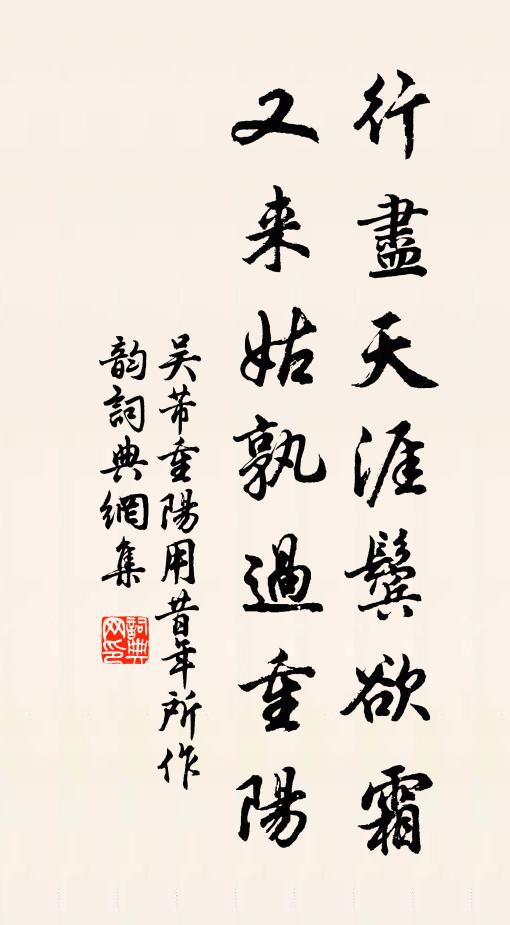 行盡天涯鬂欲霜
又来姑孰過重陽
吴芾重陽用昔年所作
韵詞典網集
詞典网印